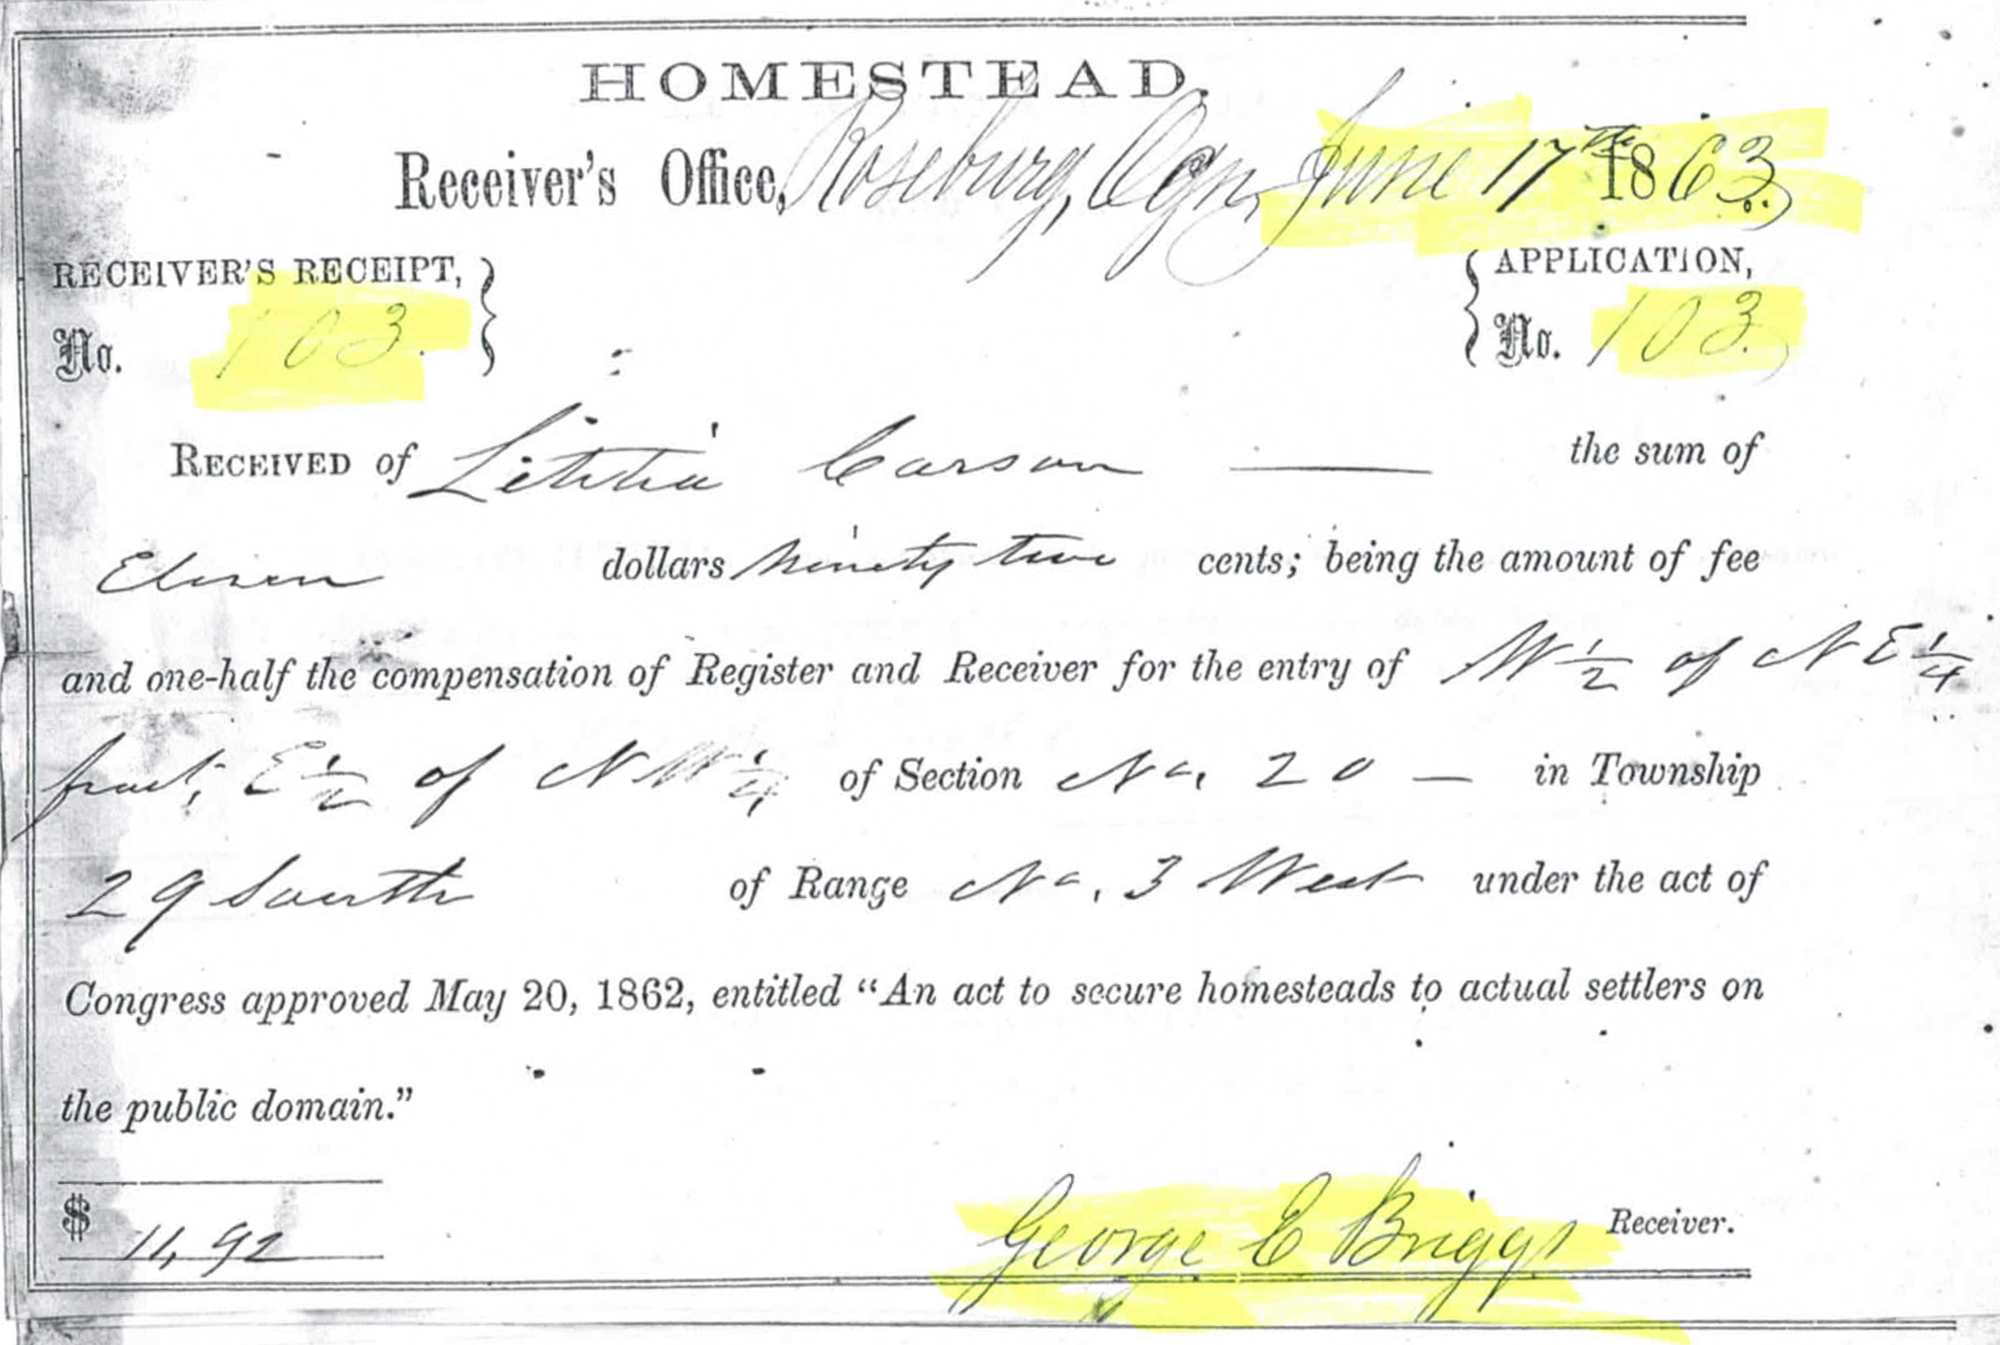 HOMESTEAD.
Receiver's Office, Roseburg, Ogn, June 17th 1863.
RECEIVER'S RECEIPT, No. 103.
APPLICATION, No. 103.
RECEIVED of Letitia Carson the sum of
Eleven dollars ninety two cents; being the amount of fee
and one-half the compensation of Register and Receiver for the entry of W 1/2 of N E 1/4
fract, E 1/2 of N W 1/4 of Section No. 20 — in Township
29 South of Range No. 3 West under the act of
Congress approved May 20, 1862, entitled “An act to secure homesteads to actual settlers on
the public domain.”
$ 11,92
George E Briggs Receiver.